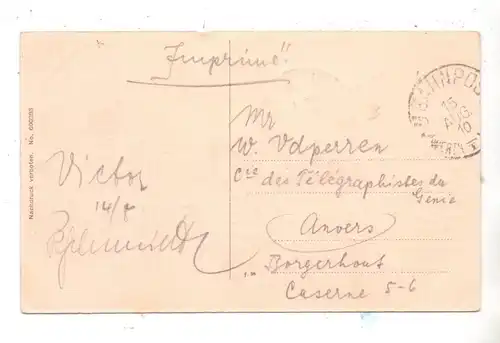 "Imprimé"
BAHNPOST
15
AUG
10
Mr
W. Vdperren
Cie des Télégraphistes du
Génie
Anvers
Borgerhout
Caserne 5-6
Victor
14/8
Nachdruck verboten. No. 600285